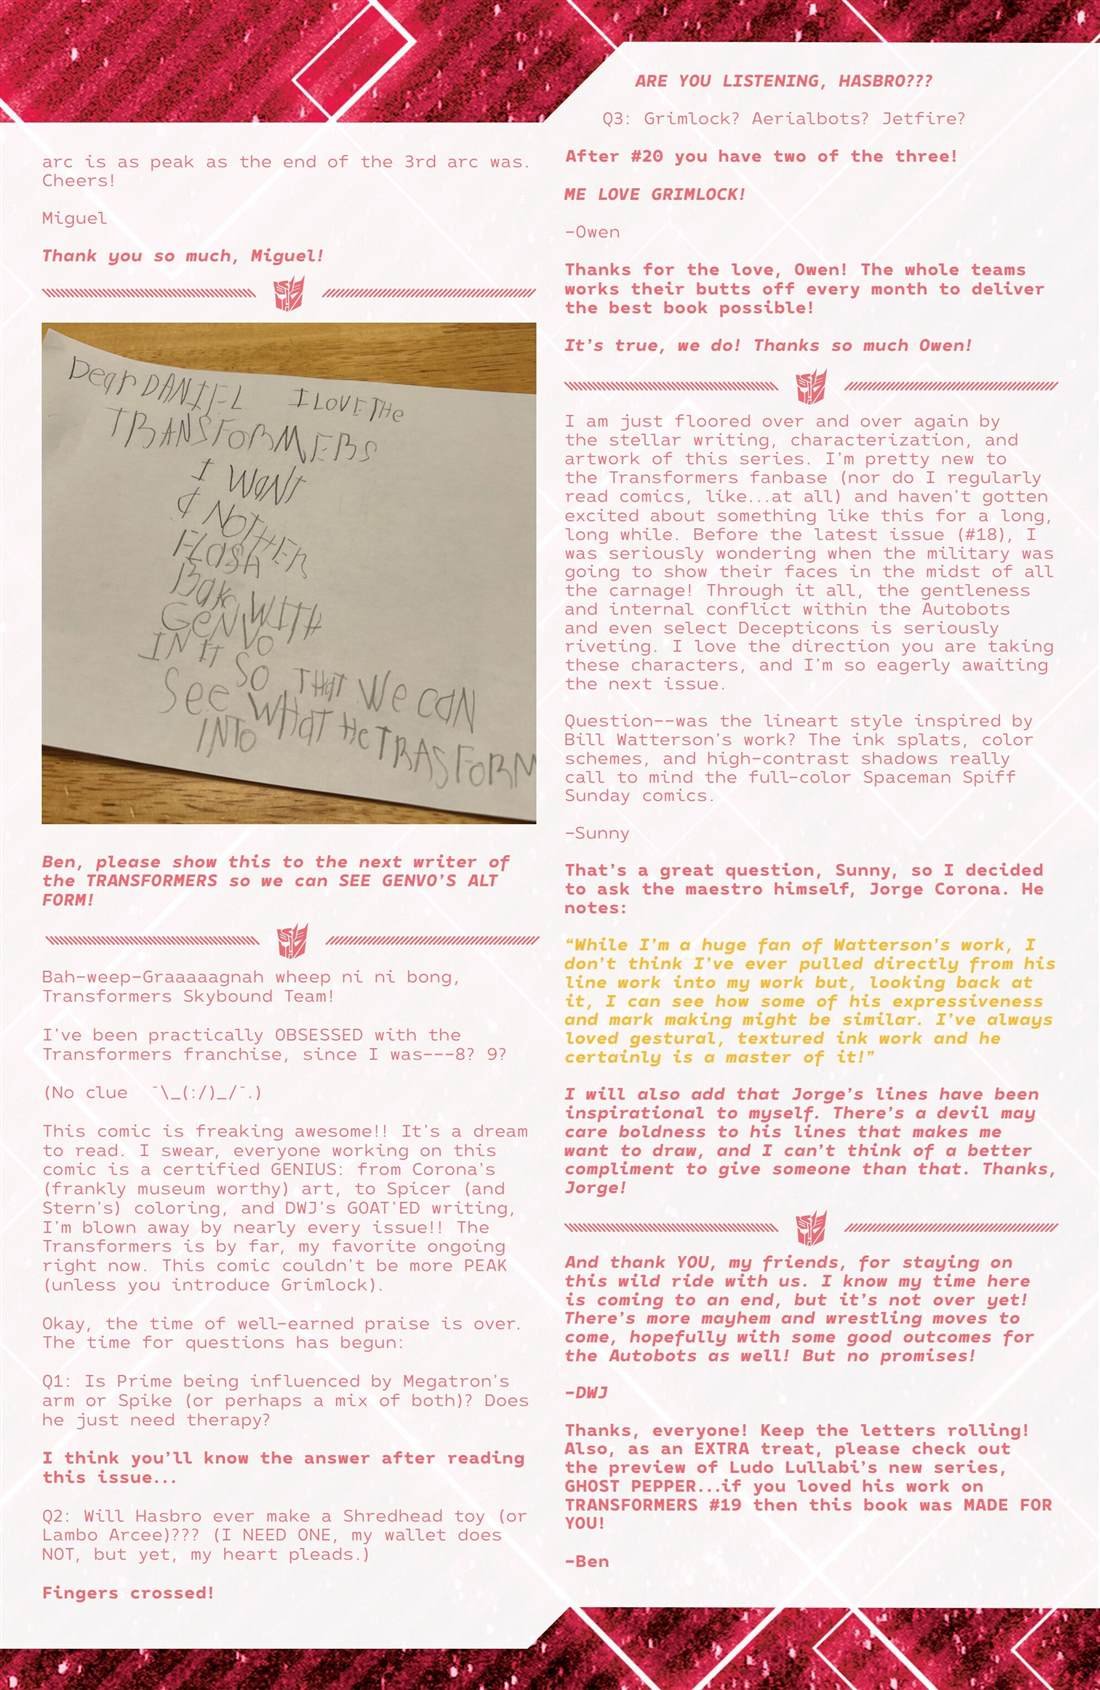 arc is as peak as the end of the 3rd arc was.
Cheers!
Miguel
Thank you so much, Miguel!
Dear DANIEL I LOVE THe
TRANSFORMERS
I WaNT
a NOTHER
FLaSH
Bake WITH
GeNVO
IN IT SO THaT We CaN
See WHaT He TRASFORM
INTO
Ben, please show this to the next writer of
the TRANSFORMERS so we can SEE GENVO'S ALT
FORM!
Bah-weep-Graaaaagnah wheep ni ni bong,
Transformers Skybound Team!
I've been practically OBSESSED with the
Transformers franchise, since I was---8? 9?
(No clue ¯\_(:/)_/¯.)
This comic is freaking awesome!! It's a dream
to read. I swear, everyone working on this
comic is a certified GENIUS: from Corona's
(frankly museum worthy) art, to Spicer (and
Stern's) coloring, and DWJ's GOAT'ED writing,
I'm blown away by nearly every issue!! The
Transformers is by far, my favorite ongoing
right now. This comic couldn't be more PEAK
(unless you introduce Grimlock).
Okay, the time of well-earned praise is over.
The time for questions has begun:
Q1: Is Prime being influenced by Megatron's
arm or Spike (or perhaps a mix of both)? Does
he just need therapy?
I think you'll know the answer after reading
this issue...
Q2: Will Hasbro ever make a Shredhead toy (or
Lambo Arcee)??? (I NEED ONE, my wallet does
NOT, but yet, my heart pleads.)
Fingers crossed!
ARE YOU LISTENING, HASBRO???
Q3: Grimlock? Aerialbots? Jetfire?
After #20 you have two of the three!
ME LOVE GRIMLOCK!
-Owen
Thanks for the love, Owen! The whole teams
works their butts off every month to deliver
the best book possible!
It's true, we do! Thanks so much Owen!
I am just floored over and over again by
the stellar writing, characterization, and
artwork of this series. I'm pretty new to
the Transformers fanbase (nor do I regularly
read comics, like...at all) and haven't gotten
excited about something like this for a long,
long while. Before the latest issue (#18), I
was seriously wondering when the military was
going to show their faces in the midst of all
the carnage! Through it all, the gentleness
and internal conflict within the Autobots
and even select Decepticons is seriously
riveting. I love the direction you are taking
these characters, and I'm so eagerly awaiting
the next issue.
Question--was the lineart style inspired by
Bill Watterson's work? The ink splats, color
schemes, and high-contrast shadows really
call to mind the full-color Spaceman Spiff
Sunday comics.
-Sunny
That's a great question, Sunny, so I decided
to ask the maestro himself, Jorge Corona. He
notes:
"While I'm a huge fan of Watterson's work, I
don't think I've ever pulled directly from his
line work into my work but, looking back at
it, I can see how some of his expressiveness
and mark making might be similar. I've always
loved gestural, textured ink work and he
certainly is a master of it!"
I will also add that Jorge's lines have been
inspirational to myself. There's a devil may
care boldness to his lines that makes me
want to draw, and I can't think of a better
compliment to give someone than that. Thanks,
Jorge!
And thank YOU, my friends, for staying on
this wild ride with us. I know my time here
is coming to an end, but it's not over yet!
There's more mayhem and wrestling moves to
come, hopefully with some good outcomes for
the Autobots as well! But no promises!
-DWJ
Thanks, everyone! Keep the letters rolling!
Also, as an EXTRA treat, please check out
the preview of Ludo Lullabi's new series,
GHOST PEPPER...if you loved his work on
TRANSFORMERS #19 then this book was MADE FOR
YOU!
-Ben